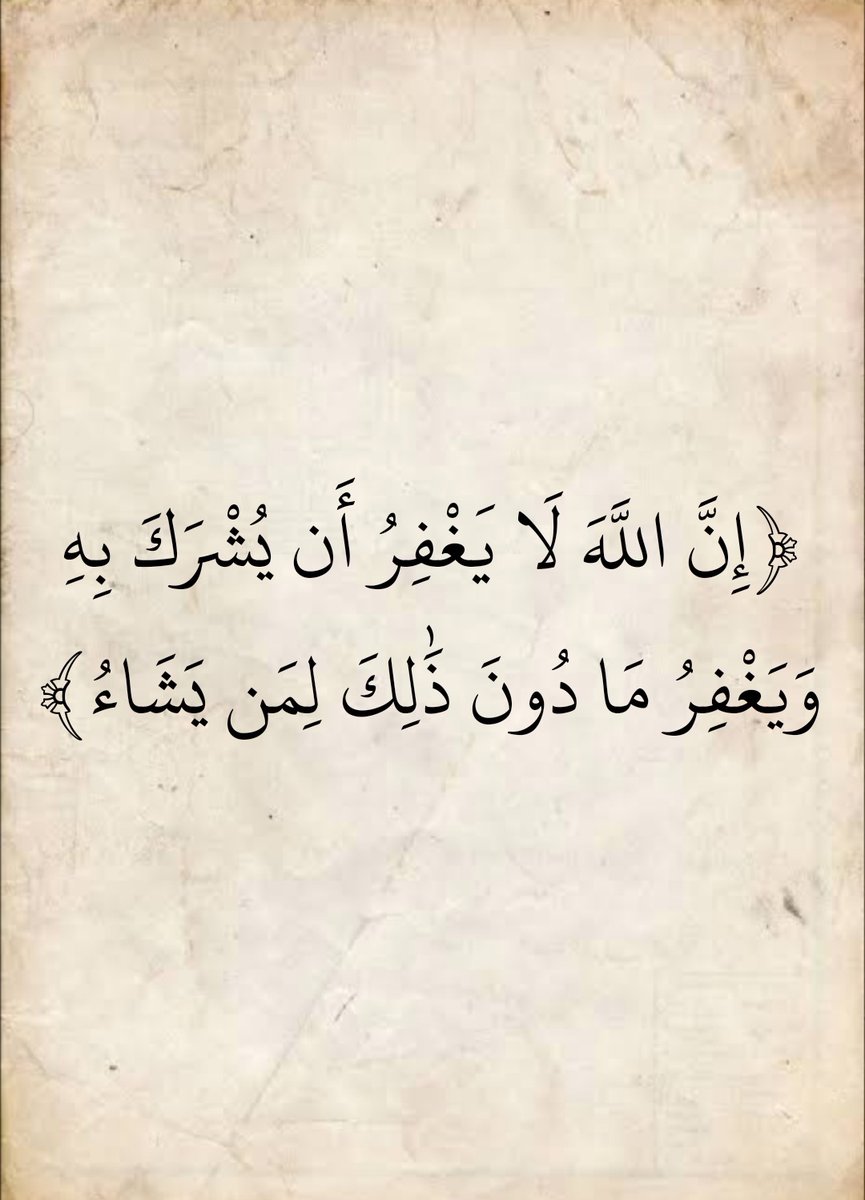 ﴿إِنَّ اللَّهَ لَا يَغْفِرُ أَن يُشْرَكَ بِهِ
وَيَغْفِرُ مَا دُونَ ذَٰلِكَ لِمَن يَشَاءُ﴾